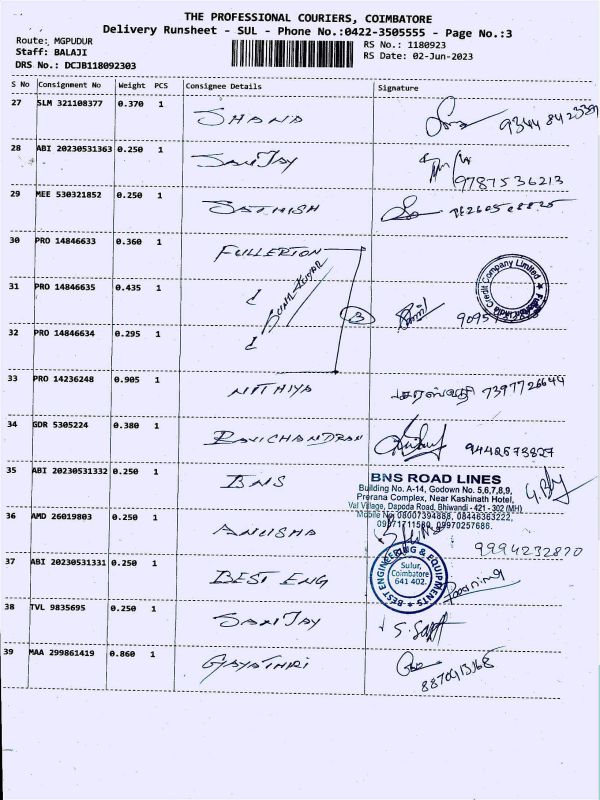 THE PROFESSIONAL COURIERS, COIMBATORE
Delivery Runsheet - SUL - Phone No.:0422-3505555 - Page No.:3
Route: MGPUDUR
RS No.: 1180923
Staff: BALAJI
RS Date: 02-Jun-2023
DRS No.: DCJB118092303
S No Consignment No Weight PCS Consignee Details Signature
27 SLM 321108377 0.370 1 SHANA
28 ABI 20230531363 0.250 1 SANJAY
9787536213
29 MEE 530321852 0.250 1 SATHISH
30 PRO 14846633 0.360 1 FULLERTON
31 PRO 14846635 0.435 1
3
32 PRO 14846634 0.295 1
33 PRO 14236248 0.905 1 NITHIYA சரஸ்வதி 7397726644
34 GDR 5305224 0.380 1 RAVICHANDRAN 9442673827
35 ABI 20230531332 0.250 1 BNS
BNS ROAD LINES
Building No. A-14, Godown No. 5,6,7,8,9,
Prerana Complex, Near Kashinath Hotel,
Val Village, Dapoda Road, Bhiwandi - 421 - 302 (MH)
Mobile No 08007394888, 08446363222,
09371711580, 09970257686.
36 AMD 26019803 0.250 1 ANUSHA
9994232870
37 ABI 20230531331 0.250 1 BEST ENG
BEST ENGINEERING & EQUIPMENTS
Sulur,
Coimbatore
641 402.
38 TVL 9835695 0.250 1 SANJAY
39 MAA 299861419 0.860 1 GAYATHRI
8870413168